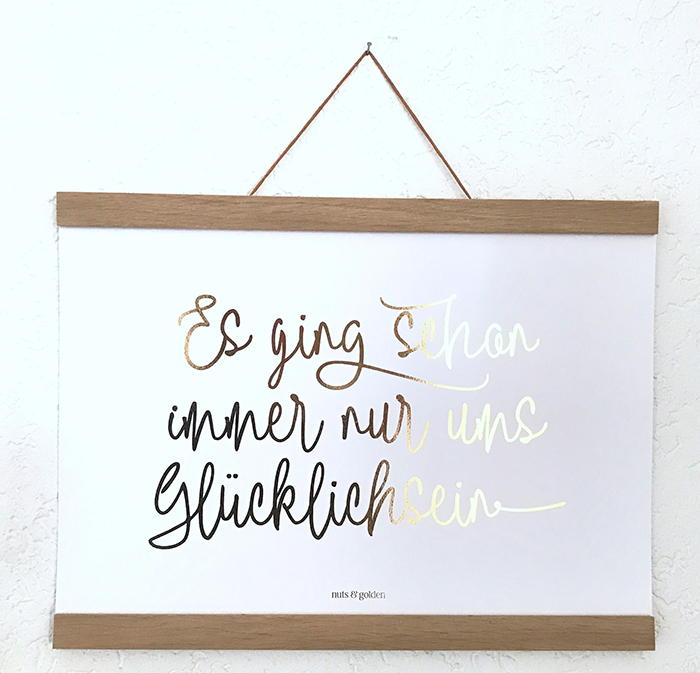 Es ging schon
immer nur ums
Glücklichsein
nuts & golden